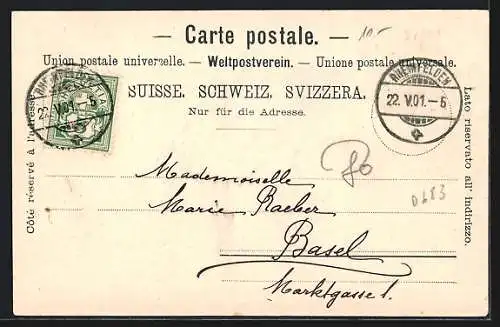 — Carte postale. —
10-
Union postale universelle. — Weltpostverein. — Unione postale universale.
SUISSE. SCHWEIZ. SVIZZERA.
Nur für die Adresse.
RHEINFELDEN
22. V.01.-5
RHEINFELDEN
22. V.01.-6
HELVETIA
Côté réservé à l'adresse.
Lato riservato all' indirizzo.
Mademoiselle
Marie Raeber
Basel
Marktgasse 1.
0683